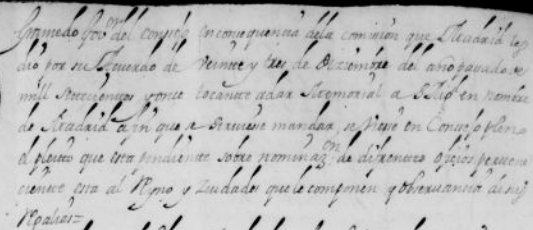 Gov.^or del Consejo En consequencia dela comision que Madrid les
dio por su Acuerdo de Veinte y tres de Diziembre del año pasado de
mill Setecientos y once tocante adar Memorial a S Mg^d en nombre
de Madrid a fin que se sirviese mandar, se viese en Consejo pleno
el pleito que esta pendiente sobre nominaz^on de diferentes ofizios pertene
cientes esta al Reyno y Ziudades que le componen y observancia de sus
Regalias=